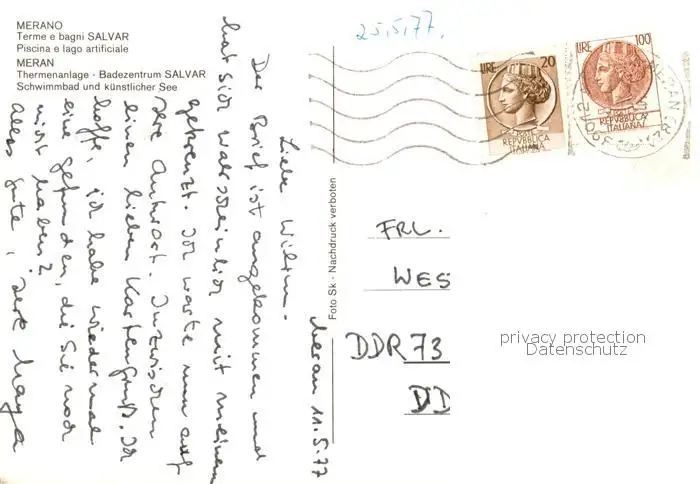 MERANO
Terme e bagni SALVAR
Piscina e lago artificiale
MERAN
Thermenanlage · Badezentrum SALVAR
Schwimmbad und künstlicher See
25.5.77.
LIRE 20
REPUBBLICA
ITALIANA
LIRE 100
REPUBBLICA
ITALIANA
Foto Sk · Nachdruck verboten
Meran 11.5.77
Liebe
Der Brief ist angekommen und
hat sich wahrscheinlich mit meinem
gekreuzt. Ich warte nun auf
Ihre Antwort. Inzwischen
einen lieben Kartengruß. Ich
hoffe, ich habe wieder mal
eine gefunden, die Sie noch
nicht haben?
Alles Gute, Ihre Maya
FRL.
WES
DDR 73
DD
privacy protection
Datenschutz